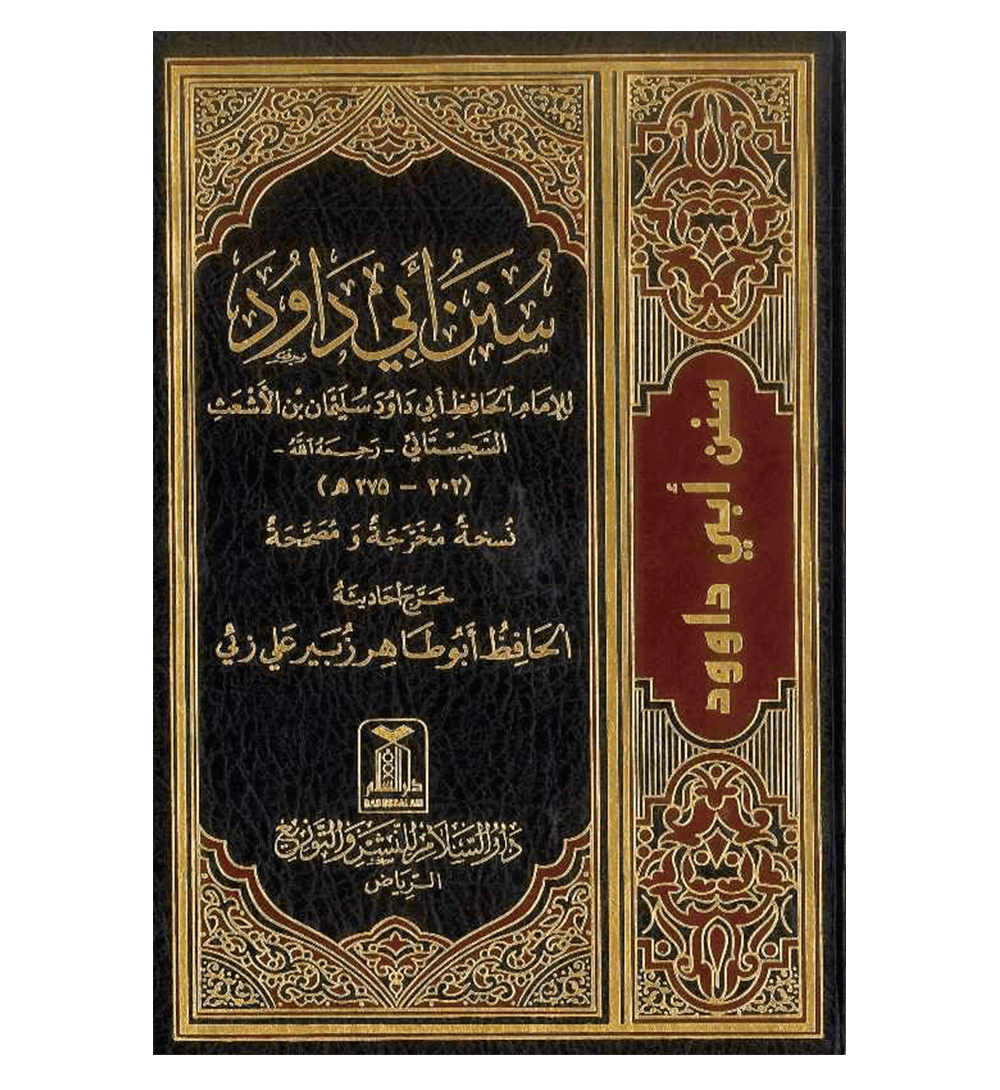 سُنَنُ أَبِي دَاوُدَ
للإمَامِ الحَافِظِ أبي دَاوُدَ سُلَيْمَان بْنِ الأَشْعَثِ
السَّجِسْتَانِي - رَحِمَهُ اللهُ -
(٢٠٢ – ٢٧٥ هـ)
نُسخةٌ مُخَرَّجَةٌ وَ مُصَحَّحَةٌ
خَرَّجَ أحَادِيثَهُ
الحَافِظُ أَبُو طَاهِر زُبَير عَلي زئي
دار السلام
DARUSSALAM
دَارُ السَّلَامِ لِلنَّشْرِ وَالتَّوزِيع
الرِّيَاض
سنن أبي داوود